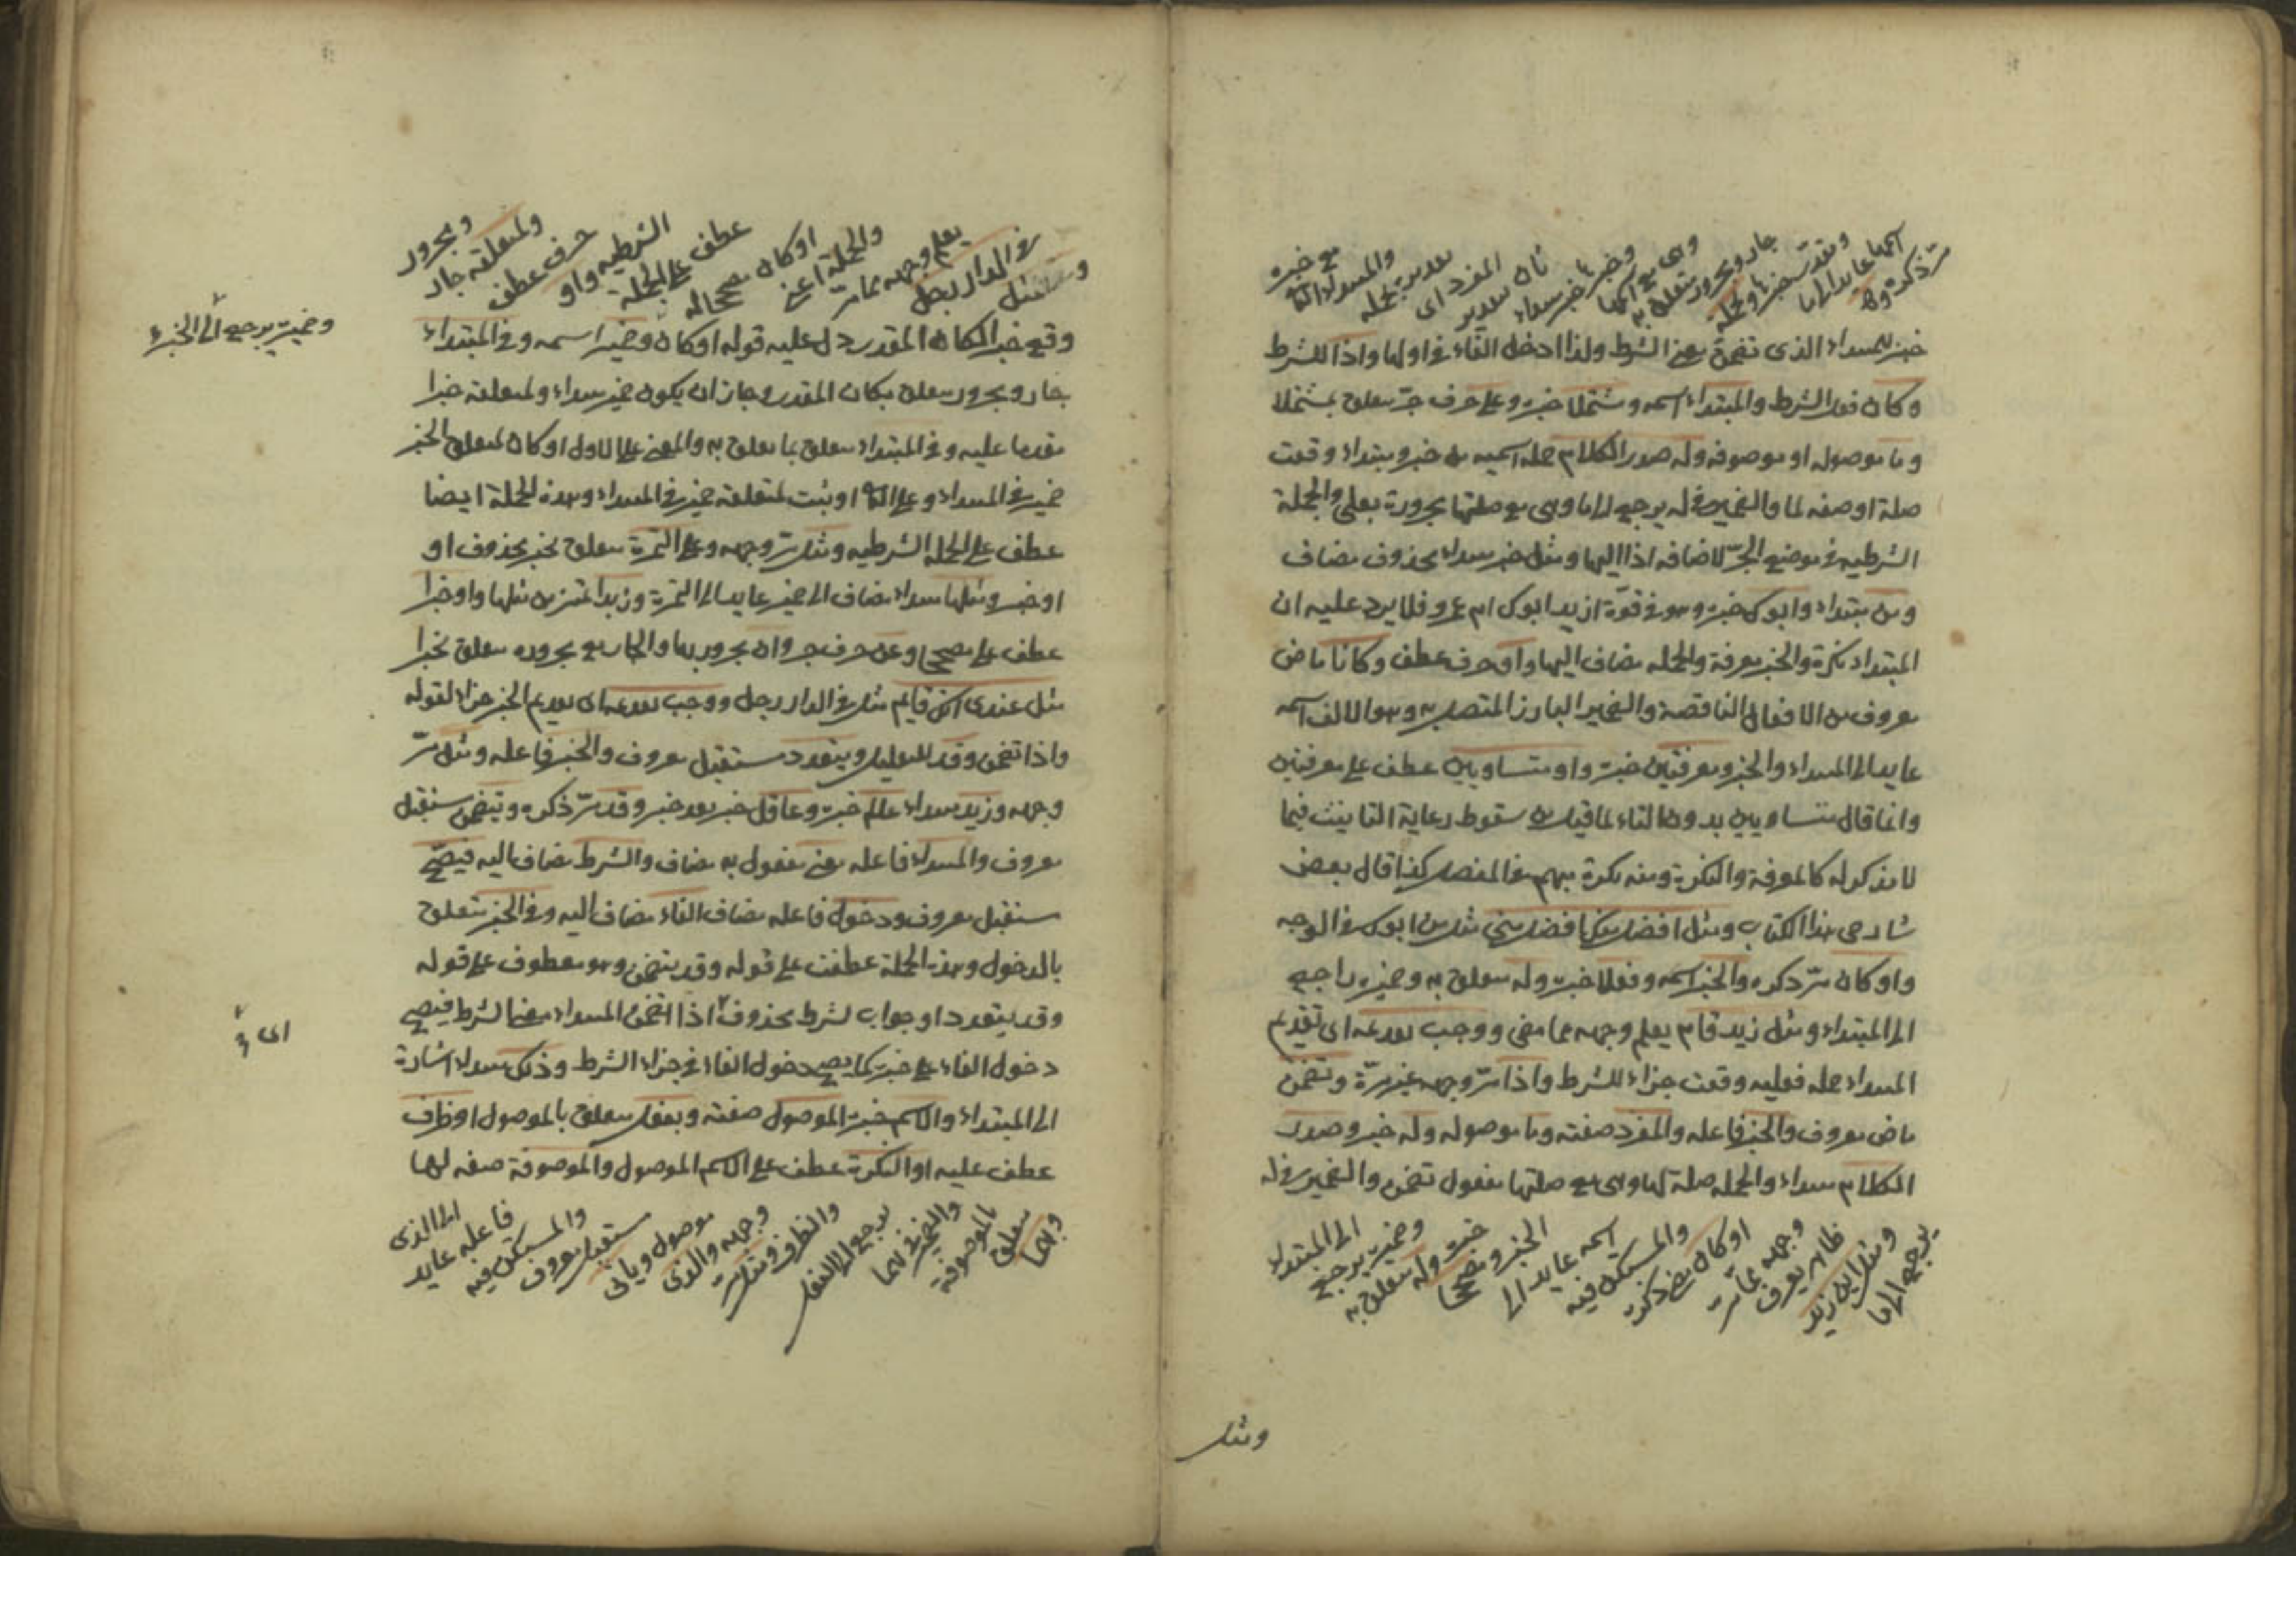 مر ذكره وما
اسمها عايد الى ما
وبعده خبرها والجملة
جار ومجرور متعلق به
وهى مع اسمها
وخبرها خبر مبتداء
ثان تقدير
المفرد اى
تقديره بجملة
والمبتداء الثانى
مع خبره
خبر للمبتداء الذى تضمن معنى الشرط ولذا ادخل الفاء فى اولها واذا للشرط
وكان فعل الشرط والمبتداء اسمه ومشتملا خبره وعلى حرف جر متعلق بمشتملا
وما موصوله او موصوفه وله صدر الكلام جمله اسميه من خبر ومبتداء وقعت
صلة او صفه لما والضمير فى له يرجع الى ما وهى مع صلتها مجرورة بعلى والجملة
الشرطيه فى موضع الجر لاضافه اذا اليها ومثل خبر مبتداء محذوف مضاف
ومن مبتداء وابوك خبره وهو فى قوة ازيد ابوك ام عمرو فلا يرد عليه ان
المبتداء نكرة والخبر معرفة والجمله مضاف اليها واو حرف عطف وكانا ماض
معروف من الافعال الناقصة والضمير البارز المتصل به وهو الالف اسمه
عايد الى المبتداء والخبر ومعرفتين خبره واو متساويين عطف على معرفتين
وانما قال متساويين بدون التاء لما قيل من سقوط رعاية التانيث فيما
لا مذكر له كالمعرفة والنكرة ومنه نكرة مبهم فى المفصل كذا قال بعض
شارحى هذا الكتاب ومثل افضل منك افضل منى مثل من ابوك فى الوجه
واو كان مر ذكره والخبر اسمه وفعلا خبره وله متعلق به وضميره راجع
الى المبتداء ومثل زيد قام يعلم وجهه مما مضى ووجب تقديمه اى تقديم
المبتداء جمله فعليه وقعت جزاء للشرط واذا مر وجهه غير مرة وتضمن
ماض معروف والخبر فاعله والمفرد صفته وما موصوله وله خبر وصدر
الكلام مبتداء والجمله صلة لها وهى مع صلتها مفعول تضمن والضمير فى له
يرجع الى ما
ومثل اين زيد
ظاهر يعرف
وجهه مما مر
او كان مضى ذكره
والمستكن فيه
اسمه عايد الى
الخبر ومصححا
خبره وله متعلق به
وضميره يرجع
الى المبتداء
ومثل
ومثل
فى الدار رجل
يعلم وجهه مما مر
والجملة اعنى
او كان مصححا له
عطف على الجملة
الشرطيه واو
حرف عطف
ولمتعلقه جار
ومجرور
وقع خبر الكان المقدر دل عليه قوله او كان وضمير اسمه وفى المبتداء
وضميره يرجع الى الخبر
جار ومجرور متعلق بكان المقدر وجاز ان يكون ضمير مبتداء ولمتعلقه خبرا
مقدما عليه وفى المبتداء متعلق بما تعلق به والمعنى على الاول او كان لمتعلق الخبر
ضمير فى المبتداء وعلى الثانى او ثبت لمتعلقه ضمير فى المبتداء وهذه الجملة ايضا
عطف على الجمله الشرطيه ومثل مر وجهه وعلى التمرة متعلق بخبر محذوف او
او خبر ومثلها مبتداء مضاف الى ضمير عايد الى التمرة وزبدا تمييز من مثلها واو خبرا
عطف على مصححا وعن حرف جر وان مجرور بها والجار مع مجروره متعلق بخبرا
مثل عندى انك قايم مثل فى الدار رجل ووجب تقديمه اى تقديم الخبر جزاء لقوله
واذا تضمن وقد للتقليل ويتعدد مستقبل معروف والخبر فاعله ومثل مر
وجهه وزيد مبتداء عالم خبره وعاقل خبر بعد خبر وقد مر ذكره ويتضمن مستقبل
معروف والمبتداء فاعله معنى مفعول به مضاف والشرط مضاف اليه فيصح
مستقبل معروف ودخول فاعله مضاف الفاء مضاف اليه وفى الخبر متعلق
بالدخول وهذه الجملة عطفت على قوله وقد يتضمن وهو معطوف على قوله
وقد يتعدد او جواب لشرط محذوف اذا تضمن المبتداء معنى الشرط فيصح
اى و
دخول الفاء على خبره كما يصح دخول الفاء فى جزاء الشرط وذلك مبتداء اشارة
الى المبتداء والاسم خبره الموصول صفته وبفعل متعلق بالموصول او ظرف
عطف عليه او النكرة عطف على الاسم الموصول والموصوفة صفه لها
وبهما
متعلق
بالموصوفة
والضمير فى بهما
يرجع الى الفعل
والظرف ومثل مر
وجهه والذى
موصول وياتى
مستقبل معروف
والمستكن فيه
فاعله عايد
الى الذى